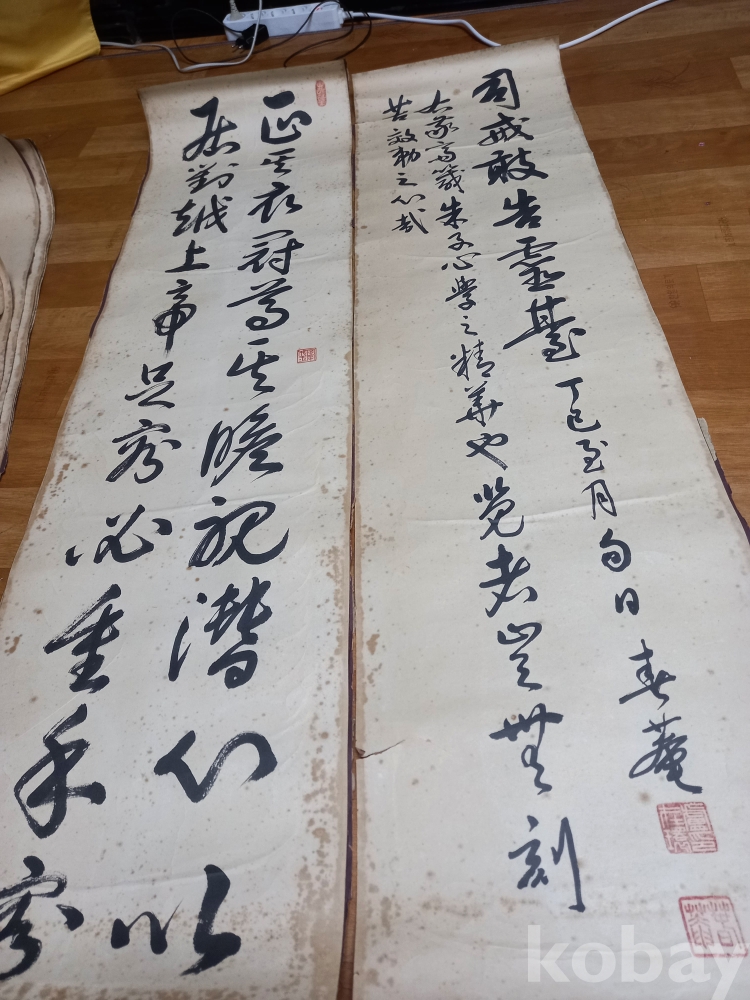 正其衣冠尊其瞻視潛心以
居對越上帝足容必重手容
司戒敢告靈臺 丁巳至月旬日 春菴
右敬齋箴朱子心學之精華也覽者豈無刻
苦效勅之心哉
kobay